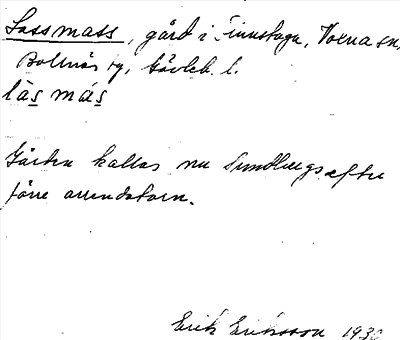 Lassmass, gård i Finnstuga, Voxna sn,
Bollnäs tg, Gävleb. l.
làs màs
Gården kallas nu Sundbergs efter
förre arrendatorn.
Erik Eriksson 1930